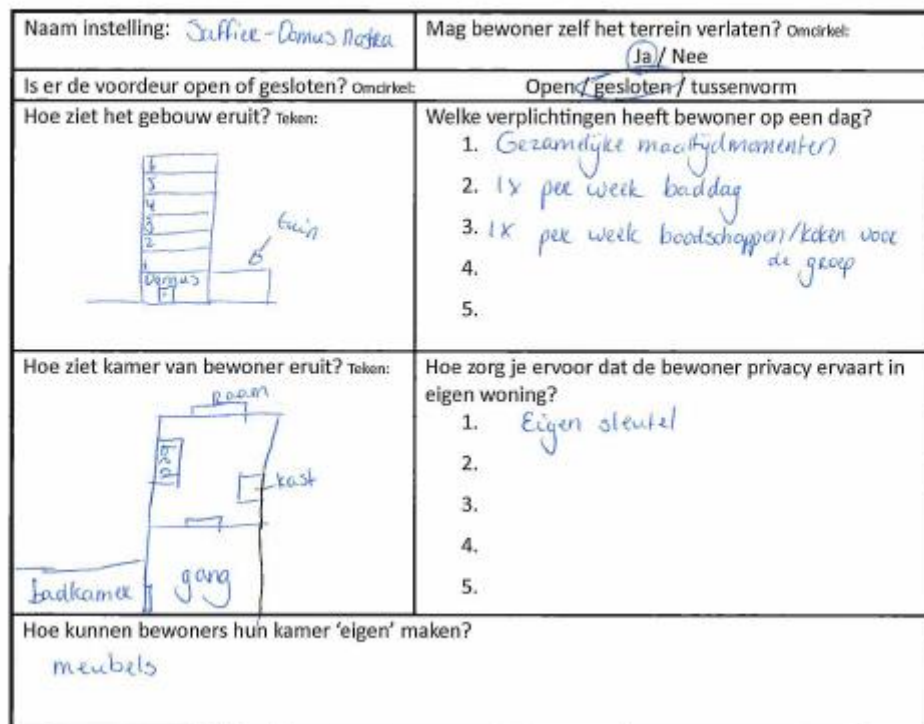 Naam instelling: Saffier-Domus Nostra
Mag bewoner zelf het terrein verlaten? Omcirkel:
Ja / Nee
Is er de voordeur open of gesloten? Omcirkel:
Open / gesloten / tussenvorm
Hoe ziet het gebouw eruit? Teken:
6
5
4
3
2
1
Domus
tuin
Welke verplichtingen heeft bewoner op een dag?
1. Gezamelijke maaltijdmomenten
2. 1x per week baddag
3. 1x per week boodschappen/koken voor
de groep
4.
5.
Hoe ziet kamer van bewoner eruit? Teken:
raam
bed
kast
gang
badkamer
Hoe zorg je ervoor dat de bewoner privacy ervaart in
eigen woning?
1. Eigen sleutel
2.
3.
4.
5.
Hoe kunnen bewoners hun kamer 'eigen' maken?
meubels